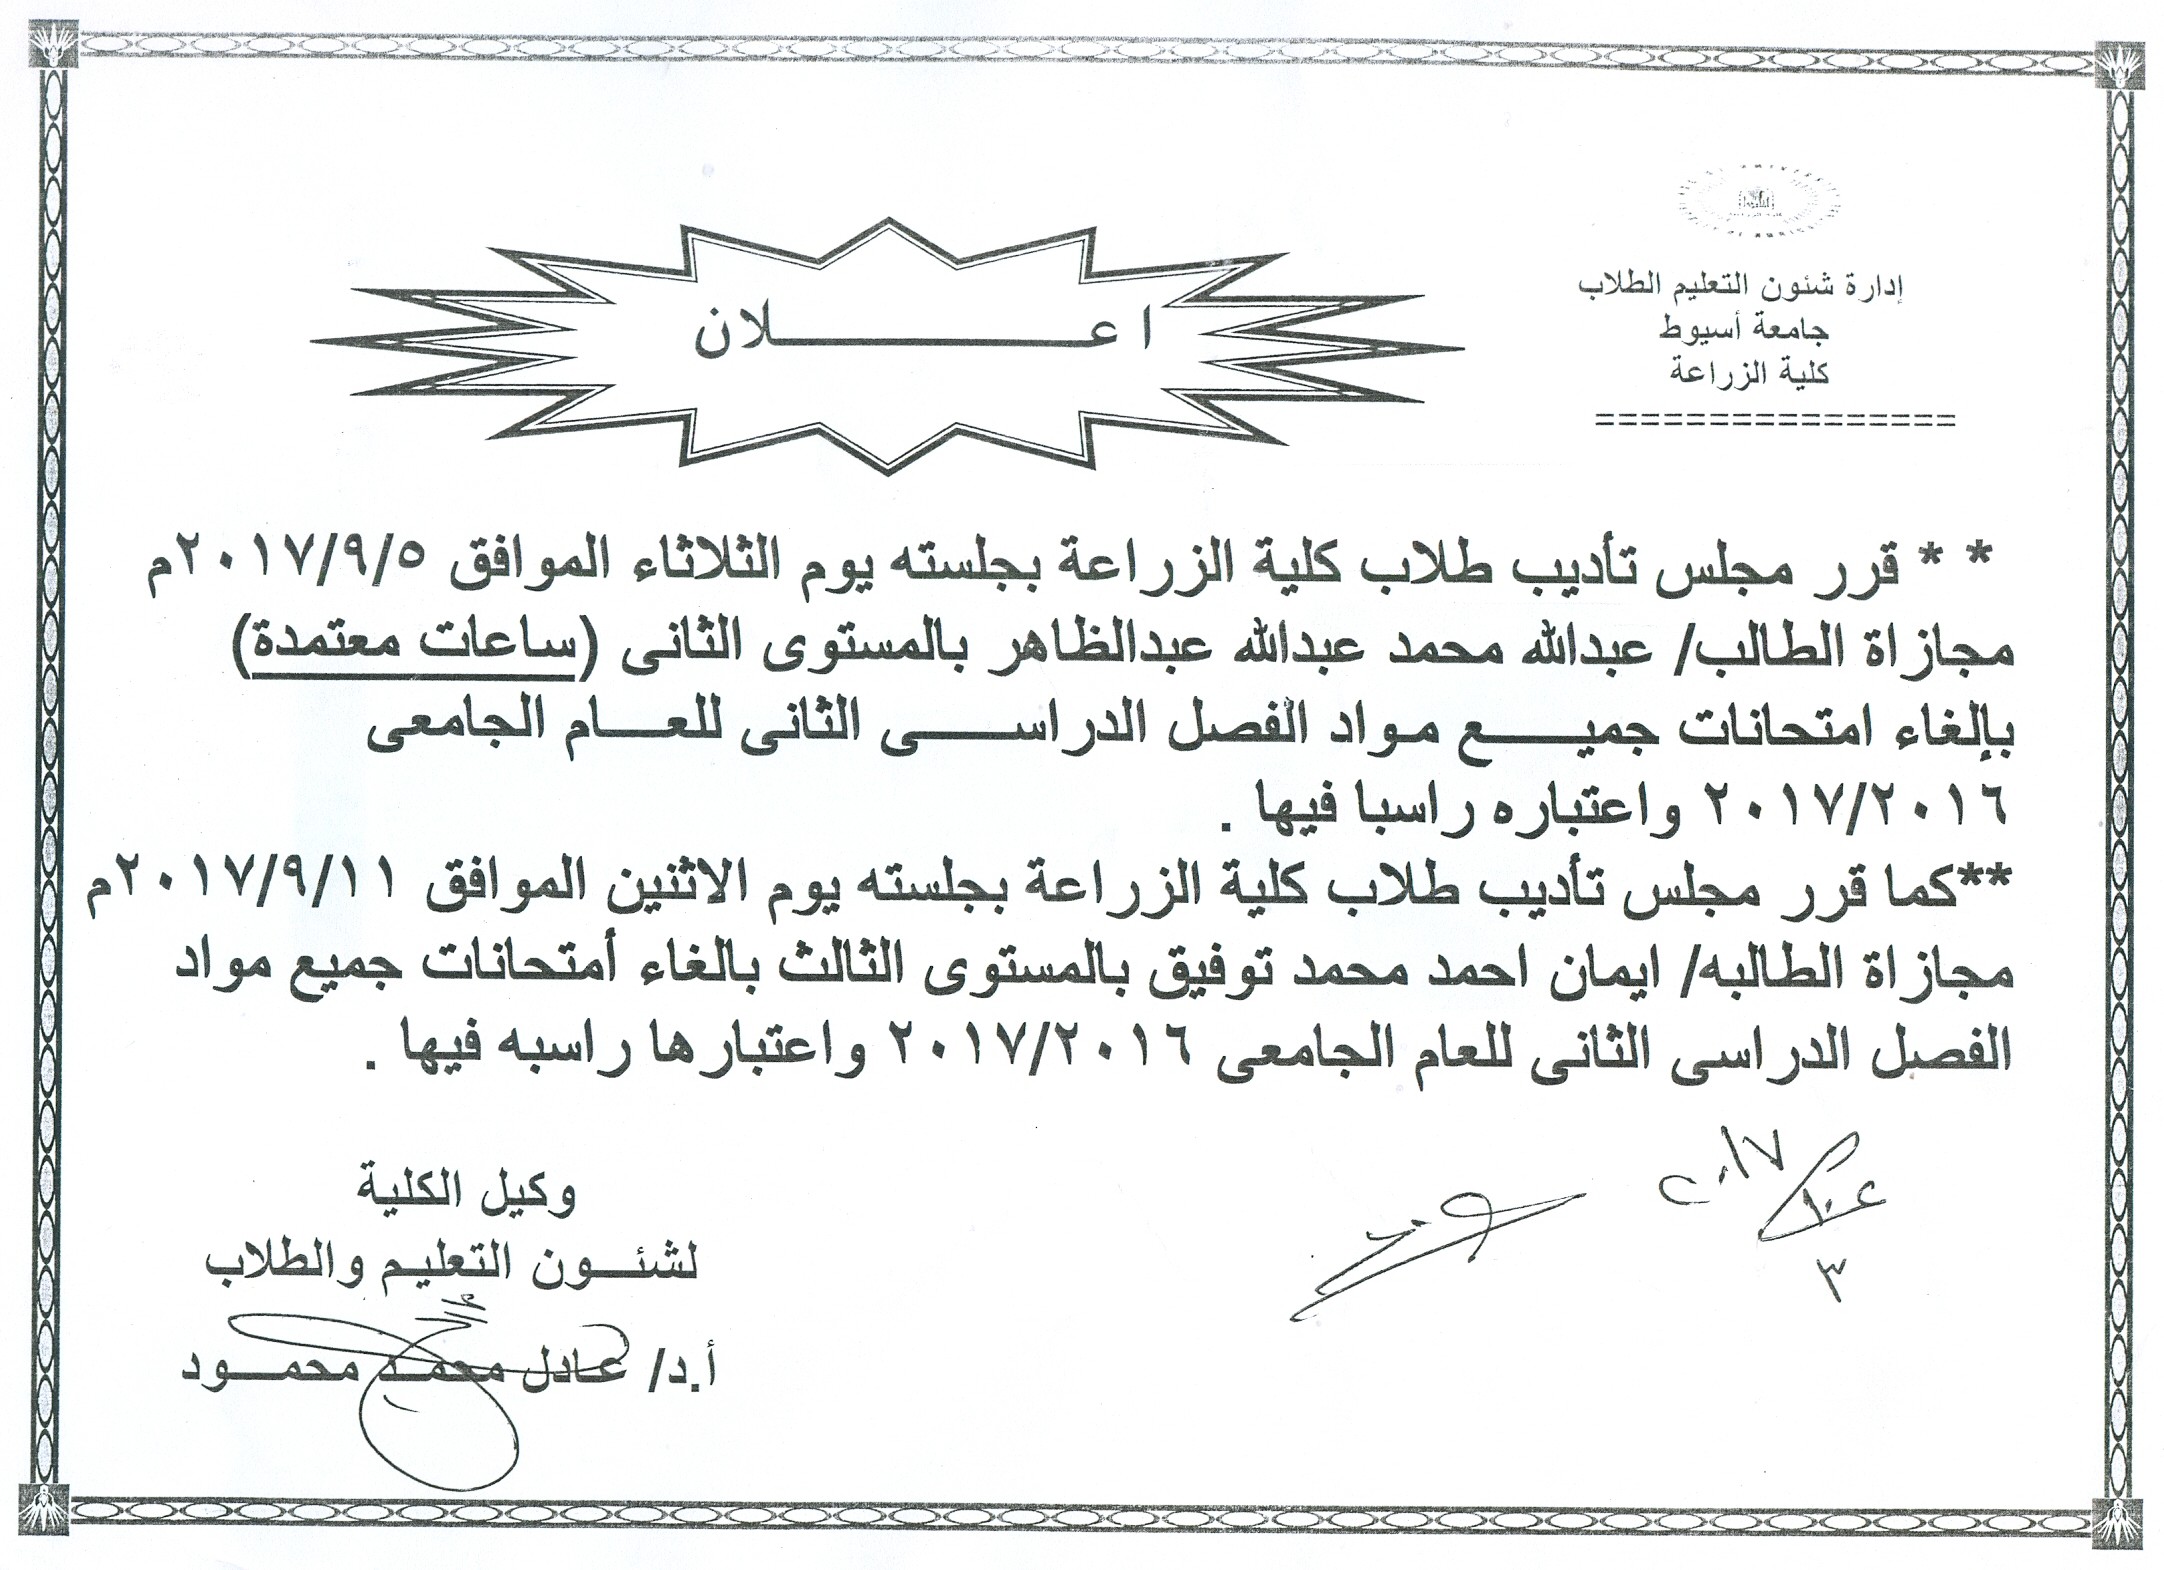 إدارة شئون التعليم الطلاب
جامعة أسيوط
كلية الزراعة
=================
اعـــــــــــلان
* * قرر مجلس تأديب طلاب كلية الزراعة بجلسته يوم الثلاثاء الموافق ٢٠١٧/٩/٥م
مجازاة الطالب/ عبدالله محمد عبدالله عبدالظاهر بالمستوى الثانى (ساعات معتمدة)
بإلغاء امتحانات جميـــــع مـواد الفصل الدراســـــى الثانى للعـــام الجامعى
٢٠١٧/٢٠١٦ واعتباره راسبا فيها .
**كما قرر مجلس تأديب طلاب كلية الزراعة بجلسته يوم الاثنين الموافق ٢٠١٧/٩/١١م
مجازاة الطالبه/ ايمان احمد محمد توفيق بالمستوى الثالث بالغاء أمتحانات جميع مواد
الفصل الدراسى الثانى للعام الجامعى ٢٠١٧/٢٠١٦ واعتبارها راسبه فيها .
وكيل الكلية
لشئـــون التعليـم والطلاب
أ.د/ عادل محمـد محمـــود